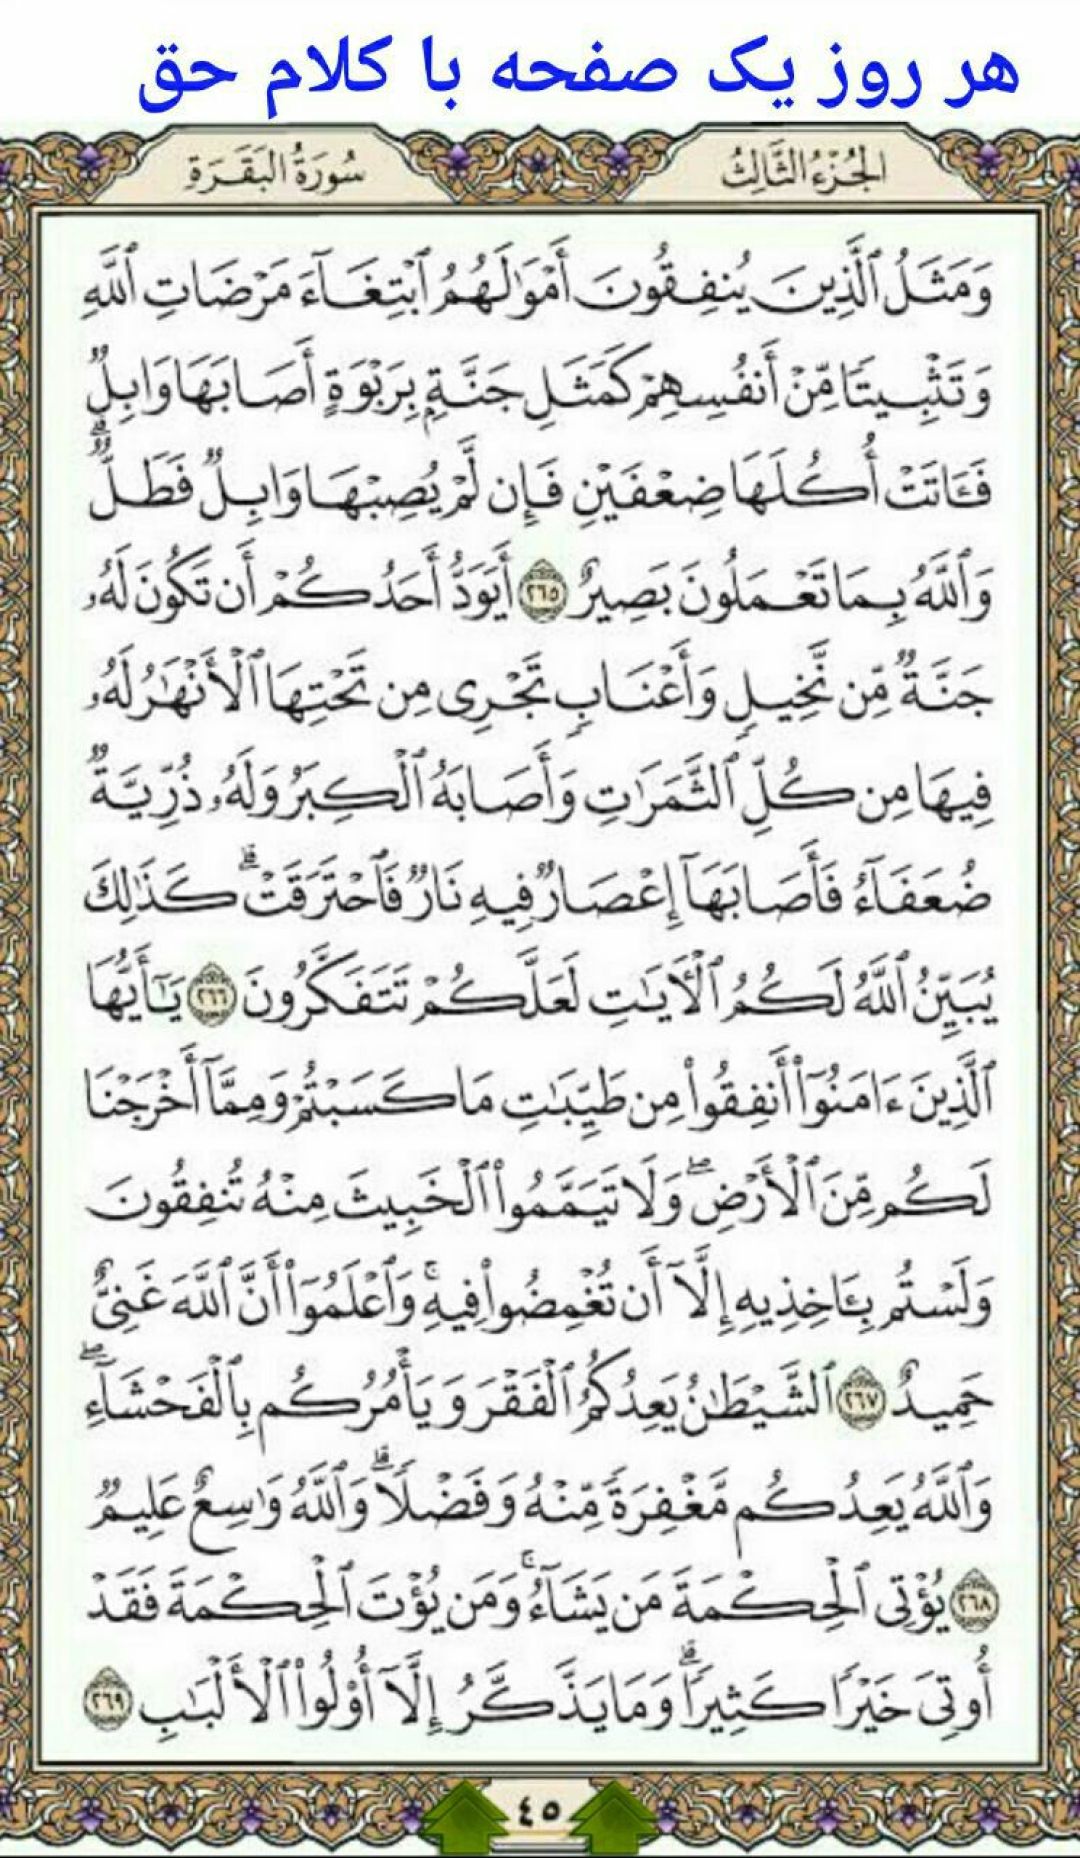 هر روز یک صفحه با کلام حق
الجُزْءُ الثَّالِثُ
سُورَةُ البَقَرَةِ
وَمَثَلُ ٱلَّذِينَ يُنفِقُونَ أَمْوَٰلَهُمُ ٱبْتِغَآءَ مَرْضَاتِ ٱللَّهِ
وَتَثْبِيتًا مِّنْ أَنفُسِهِمْ كَمَثَلِ جَنَّةٍۭ بِرَبْوَةٍ أَصَابَهَا وَابِلٌ
فَـَٔاتَتْ أُكُلَهَا ضِعْفَيْنِ فَإِن لَّمْ يُصِبْهَا وَابِلٌ فَطَلٌّ ۗ
وَٱللَّهُ بِمَا تَعْمَلُونَ بَصِيرٌ ٢٦٥ أَيَوَدُّ أَحَدُكُمْ أَن تَكُونَ لَهُۥ
جَنَّةٌ مِّن نَّخِيلٍ وَأَعْنَابٍ تَجْرِى مِن تَحْتِهَا ٱلْأَنْهَٰرُ لَهُۥ
فِيهَا مِن كُلِّ ٱلثَّمَرَٰتِ وَأَصَابَهُ ٱلْكِبَرُ وَلَهُۥ ذُرِّيَّةٌ
ضُعَفَآءُ فَأَصَابَهَآ إِعْصَارٌ فِيهِ نَارٌ فَٱحْتَرَقَتْ ۗ كَذَٰلِكَ
يُبَيِّنُ ٱللَّهُ لَكُمُ ٱلْـَٔايَٰتِ لَعَلَّكُمْ تَتَفَكَّرُونَ ٢٦٦ يَٰٓأَيُّهَا
ٱلَّذِينَ ءَامَنُوٓا۟ أَنفِقُوا۟ مِن طَيِّبَٰتِ مَا كَسَبْتُمْ وَمِمَّآ أَخْرَجْنَا
لَكُم مِّنَ ٱلْأَرْضِ ۖ وَلَا تَيَمَّمُوا۟ ٱلْخَبِيثَ مِنْهُ تُنفِقُونَ
وَلَسْتُم بِـَٔاخِذِيهِ إِلَّآ أَن تُغْمِضُوا۟ فِيهِ ۚ وَٱعْلَمُوٓا۟ أَنَّ ٱللَّهَ غَنِىٌّ
حَمِيدٌ ٢٦٧ ٱلشَّيْطَٰنُ يَعِدُكُمُ ٱلْفَقْرَ وَيَأْمُرُكُم بِٱلْفَحْشَآءِ ۖ
وَٱللَّهُ يَعِدُكُم مَّغْفِرَةً مِّنْهُ وَفَضْلًا ۗ وَٱللَّهُ وَٰسِعٌ عَلِيمٌ
٢٦٨ يُؤْتِى ٱلْحِكْمَةَ مَن يَشَآءُ ۚ وَمَن يُؤْتَ ٱلْحِكْمَةَ فَقَدْ
أُوتِىَ خَيْرًا كَثِيرًا ۗ وَمَا يَذَّكَّرُ إِلَّآ أُو۟لُوا۟ ٱلْأَلْبَٰبِ ٢٦٩
٤٥